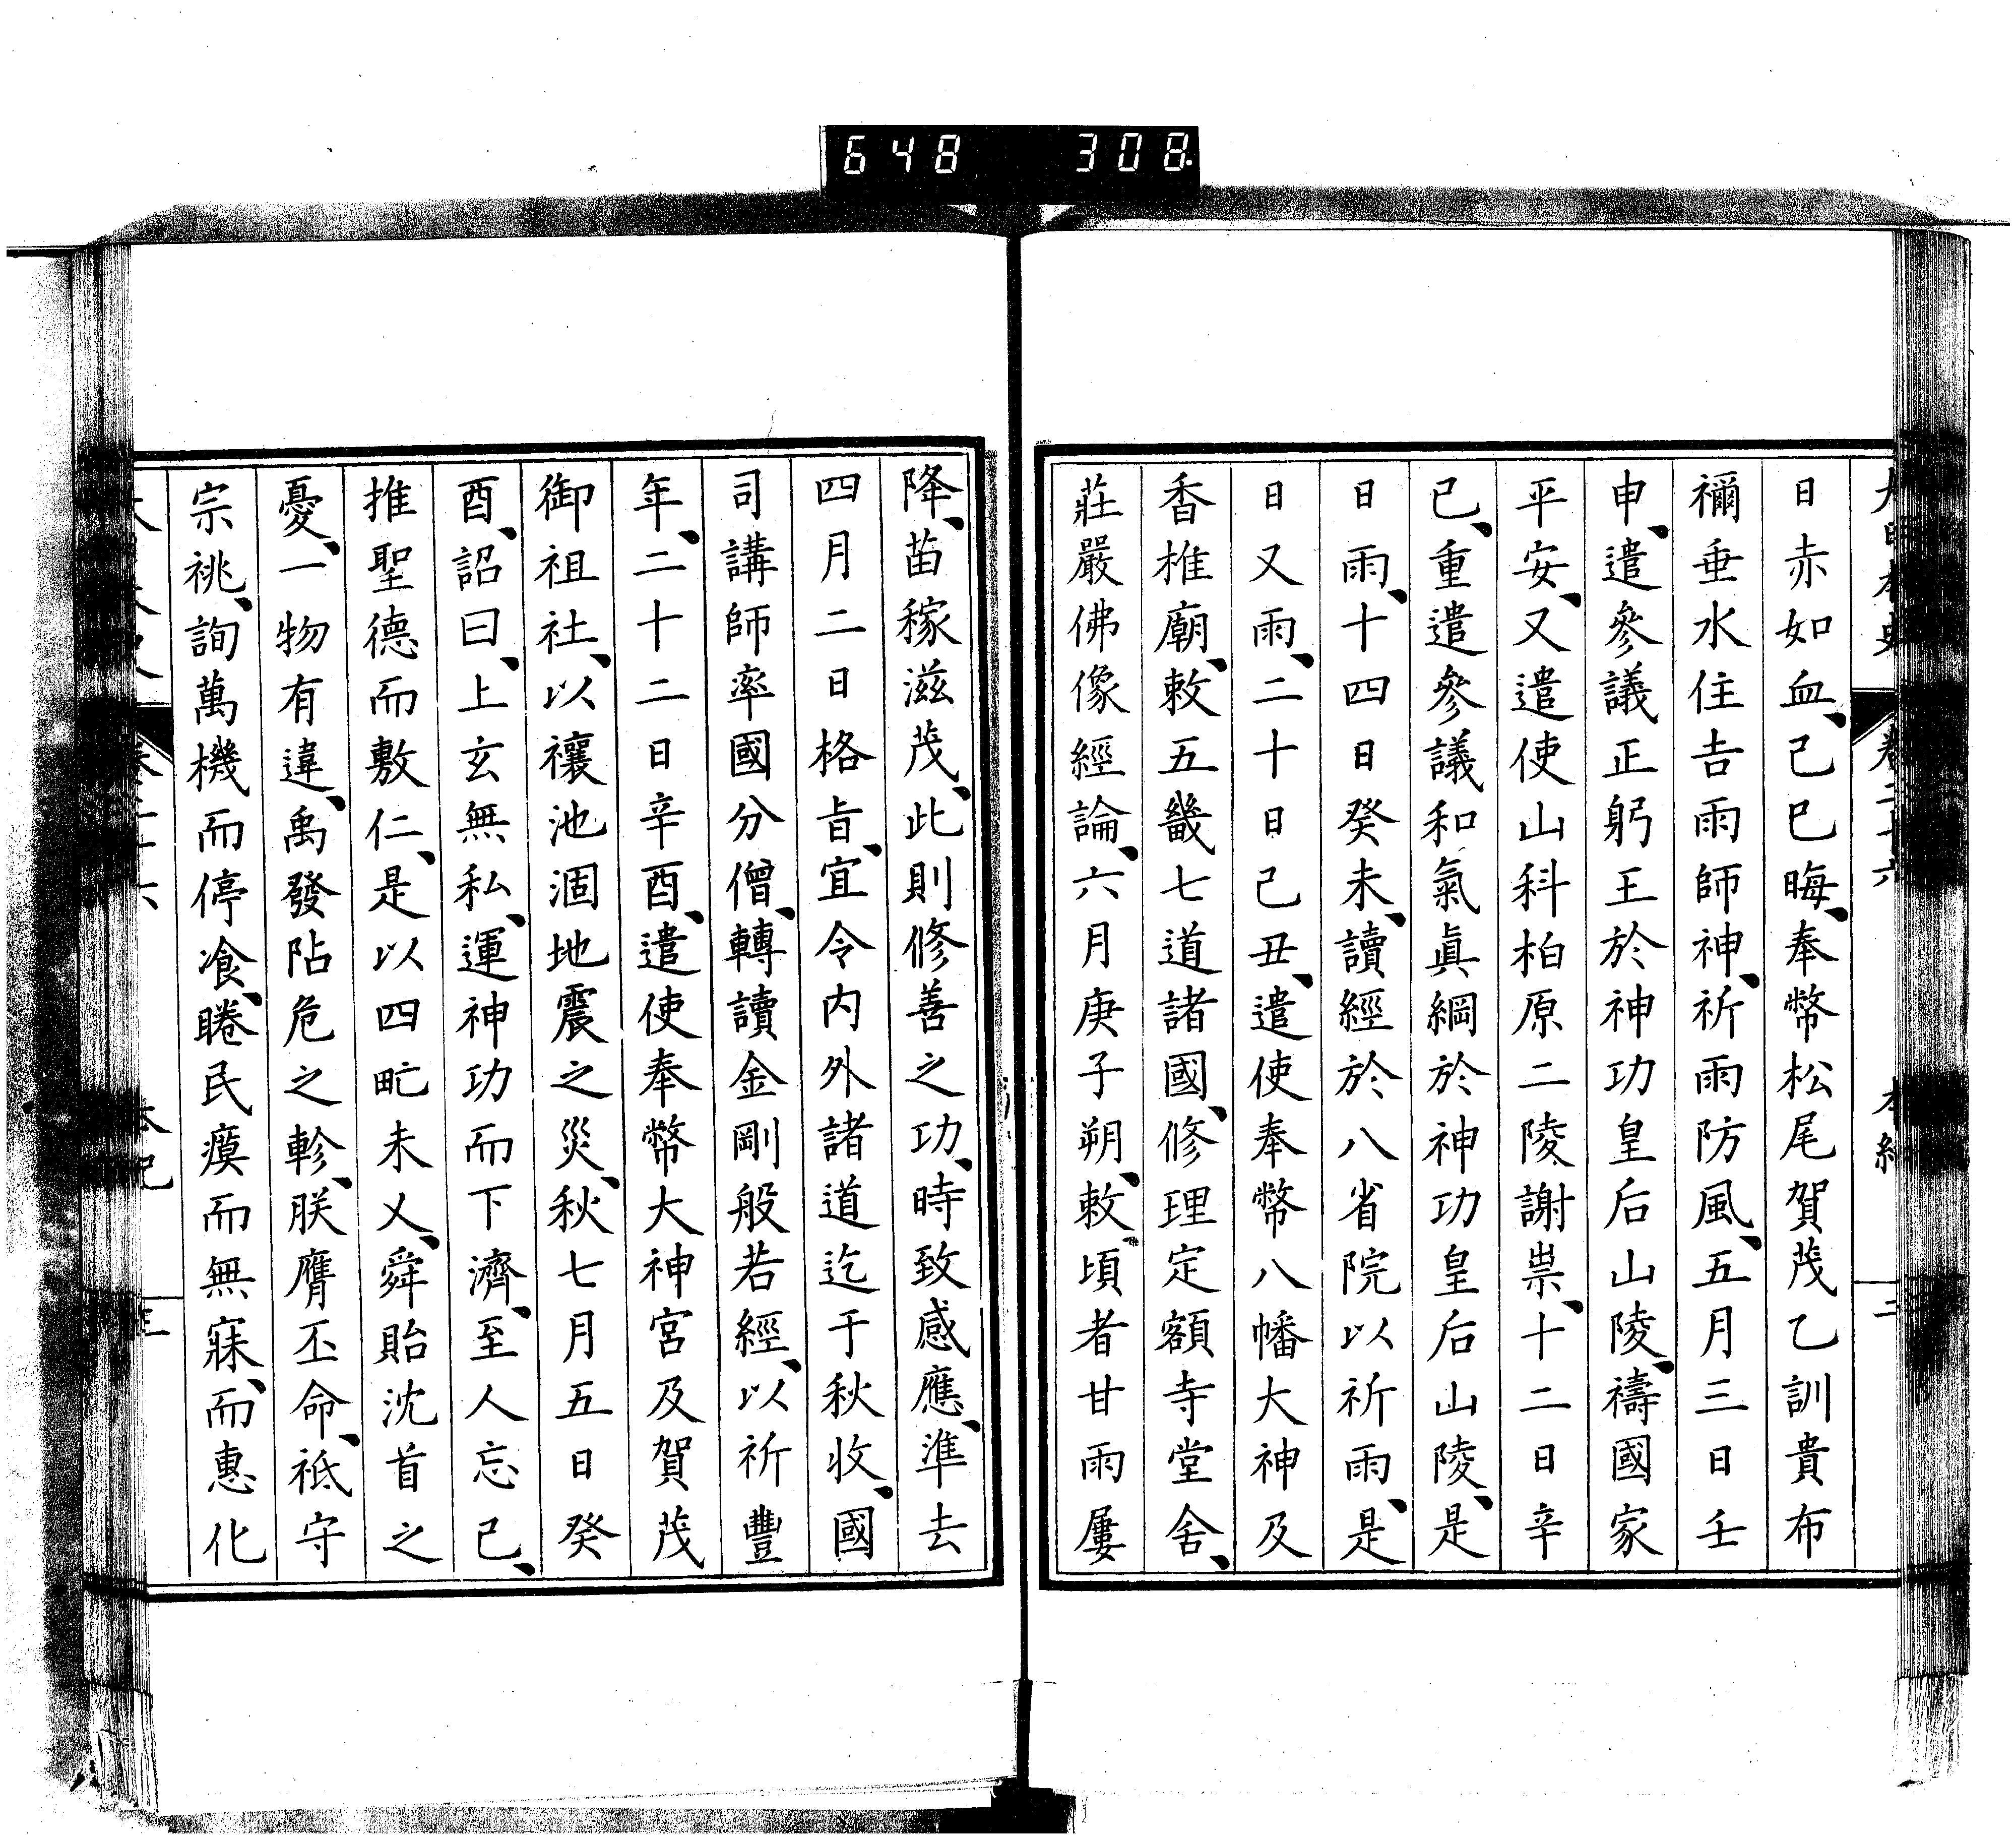 648 308
日赤如血、己巳晦、奉幣松尾賀茂乙訓貴布
禰垂水住吉雨師神、祈雨防風、五月三日壬
申、遣參議正躬王於神功皇后山陵、禱國家
平安、又遣使山科柏原二陵謝祟、十二日辛
巳、重遣參議和氣眞綱於神功皇后山陵、是
日雨、十四日癸未、讀經於八省院以祈雨、是
日又雨、二十日己丑、遣使奉幣八幡大神及
香椎廟、敕五畿七道諸國、修理定額寺堂舍、
莊嚴佛像經論、六月庚子朔、敕、頃者甘雨屢
降、苗稼滋茂、此則修善之功、時致感應、準去
四月二日格旨、宜令内外諸道迄于秋收、國
司講師率國分僧、轉讀金剛般若經、以祈豐
年、二十二日辛酉、遣使奉幣大神宮及賀茂
御祖社、以禳池涸地震之災、秋七月五日癸
酉、詔曰、上玄無私、運神功而下濟、至人忘己、
推聖德而敷仁、是以四甿未乂、舜貽沈首之
憂、一物有違、禹發阽危之軫、朕膺丕命、祗守
宗祧、詢萬機而停飡、睠民瘼而無寐、而惠化